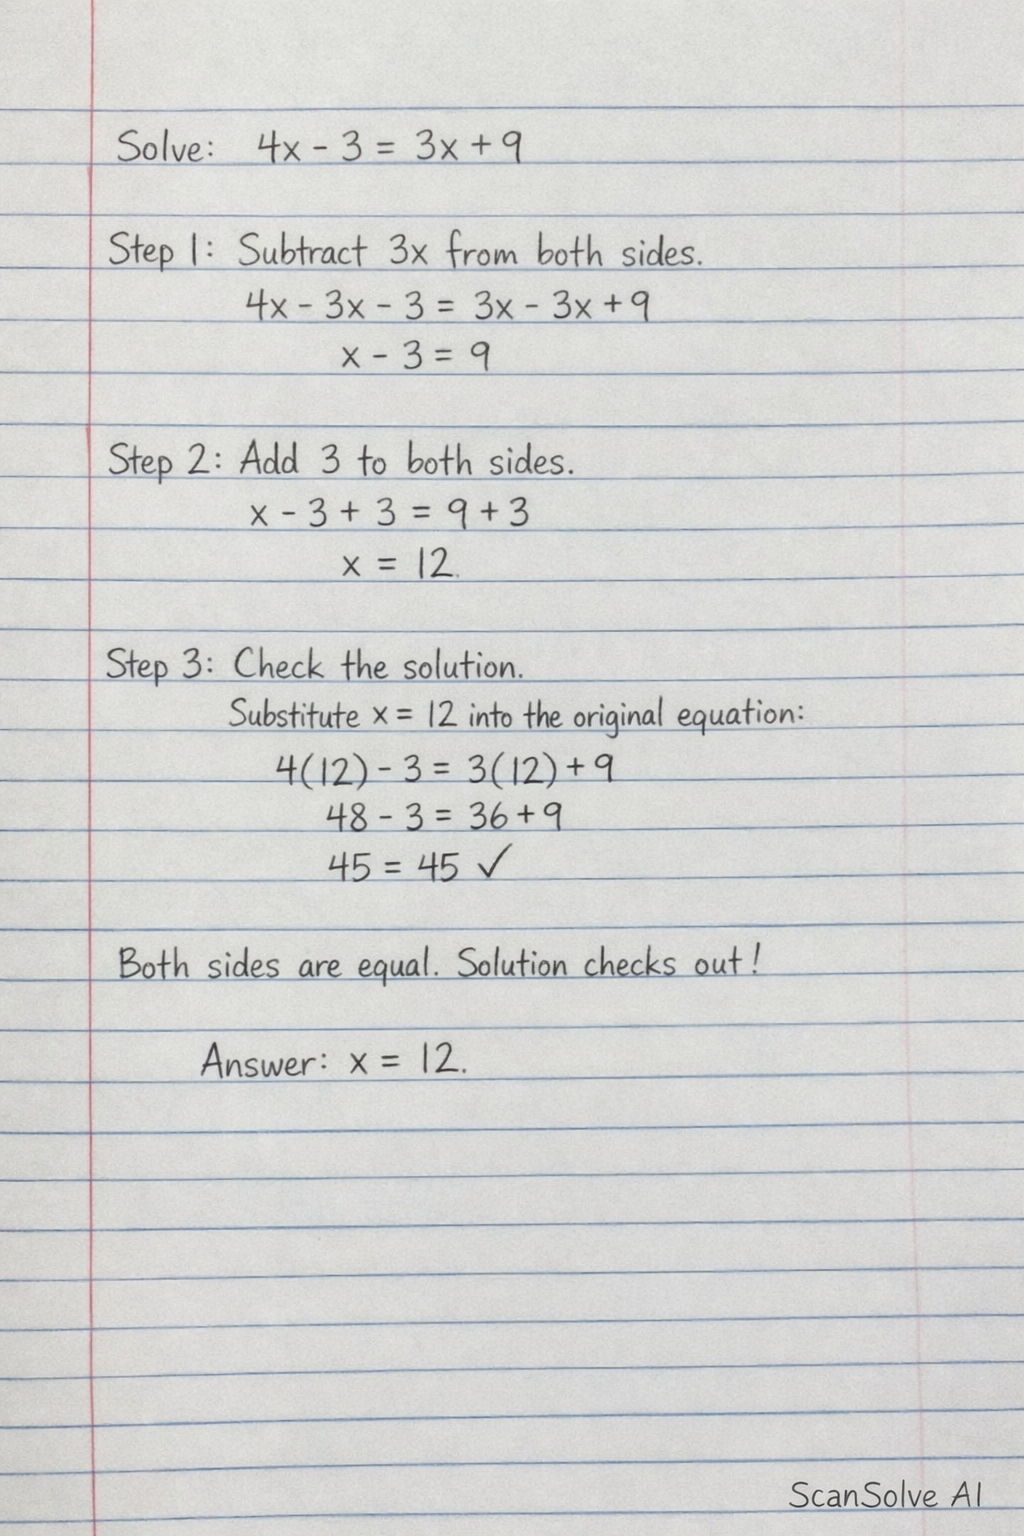 Solve: 4x - 3 = 3x + 9
Step 1: Subtract 3x from both sides.
4x - 3x - 3 = 3x - 3x + 9
x - 3 = 9
Step 2: Add 3 to both sides.
x - 3 + 3 = 9 + 3
x = 12.
Step 3: Check the solution.
Substitute x = 12 into the original equation:
4(12) - 3 = 3(12) + 9
48 - 3 = 36 + 9
45 = 45 ✓
Both sides are equal. Solution checks out!
Answer: x = 12.
ScanSolve AI